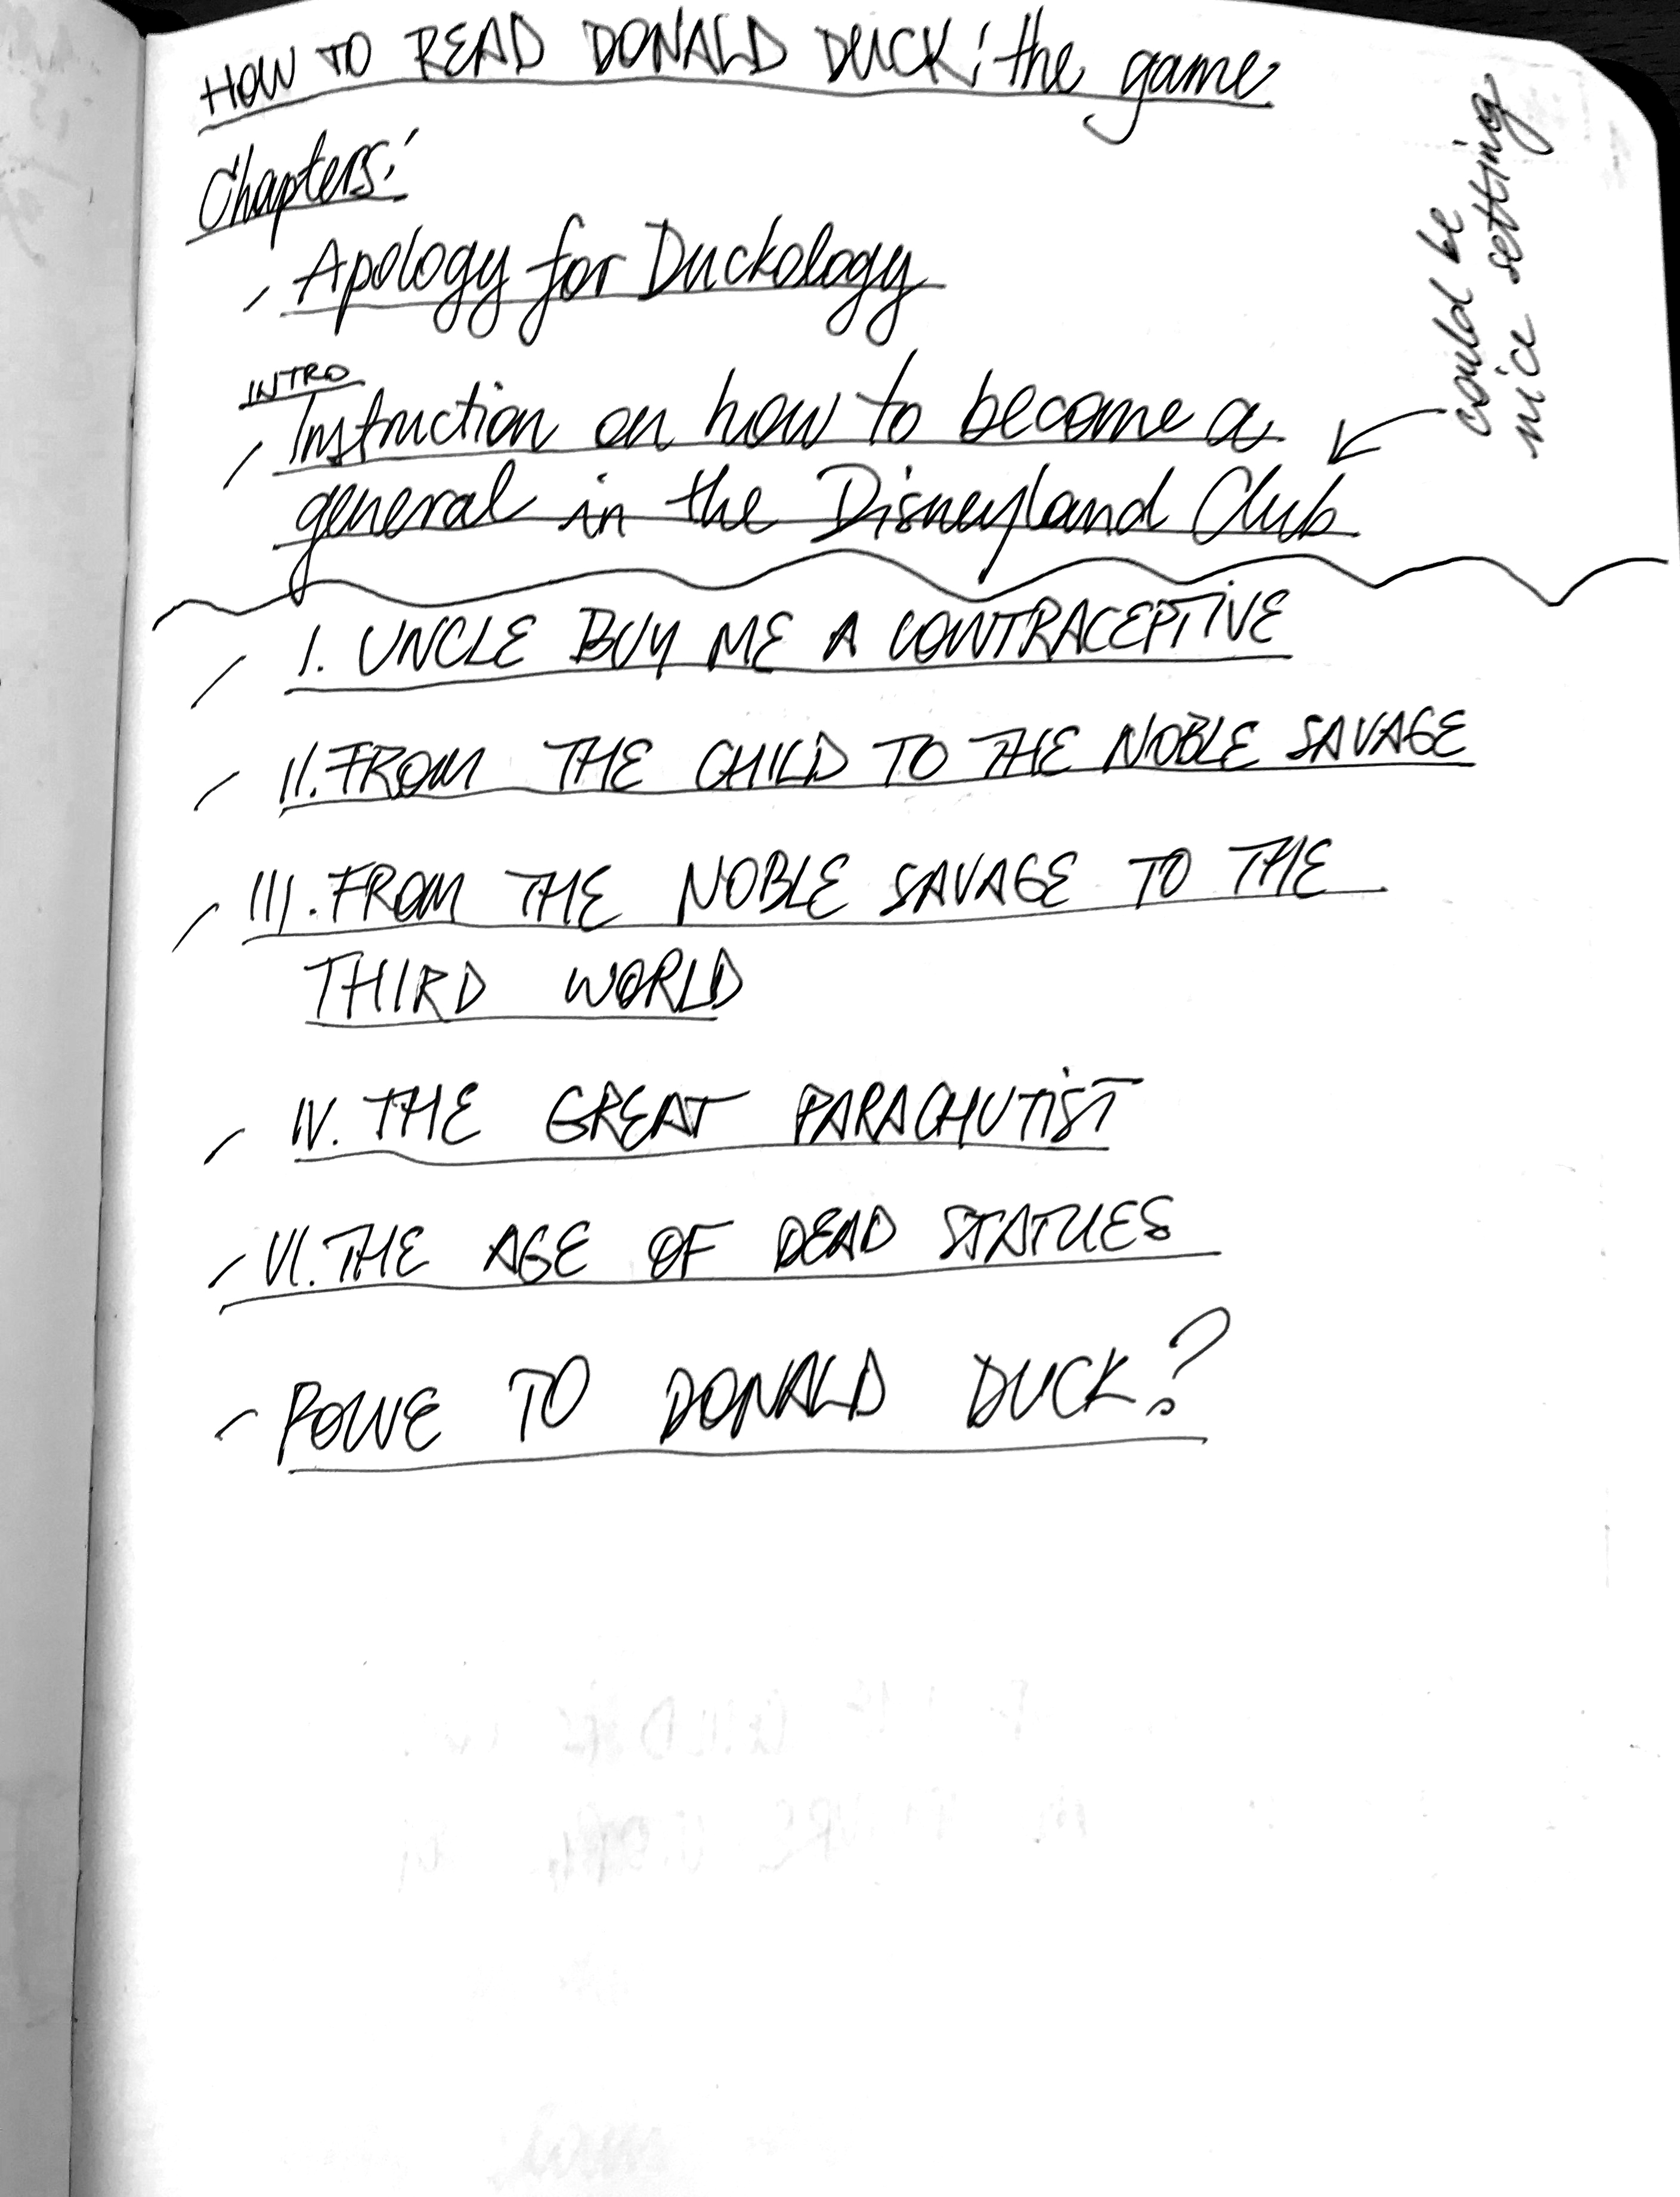 HOW TO READ DONALD DUCK: the game
Chapters:
- Apology for Duckology
INTRO
- Instruction on how to become a
general in the Disneyland Club
could be
nice setting
- I. UNCLE BUY ME A CONTRACEPTIVE
- II. FROM THE CHILD TO THE NOBLE SAVAGE
- III. FROM THE NOBLE SAVAGE TO THE
THIRD WORLD
- IV. THE GREAT PARACHUTIST
- VI. THE AGE OF DEAD STATUES
- POWE TO DONALD DUCK?